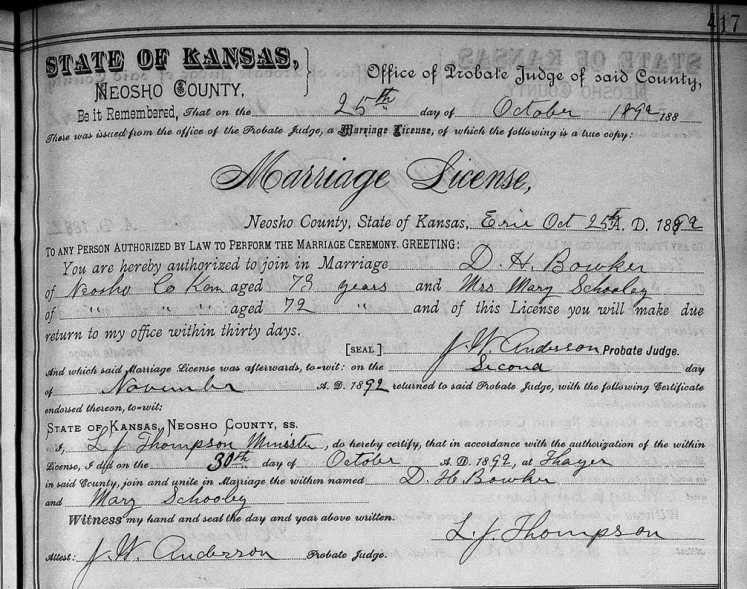 417
STATE OF KANSAS, } Office of Probate Judge of said County,
NEOSHO COUNTY,
Be it Remembered, That on the 25th day of October 1892 188
There was issued from the office of the Probate Judge, a Marriage License, of which the following is a true copy:
Marriage License,
Neosho County, State of Kansas, Erie Oct 25th A. D. 1892
TO ANY PERSON AUTHORIZED BY LAW TO PERFORM THE MARRIAGE CEREMONY, GREETING:
You are hereby authorized to join in Marriage D. H. Bowker
of Neosho Co Kan aged 73 years and Mrs Mary Schooley
of " " " aged 72 " and of this License you will make due
return to my office within thirty days.
[SEAL] J. W. Anderson Probate Judge.
And which said Marriage License was afterwards, to-wit: on the Second day
of November A. D. 1892 returned to said Probate Judge, with the following Certificate
endorsed thereon, to-wit:
STATE OF KANSAS, NEOSHO COUNTY, SS.
I, L. J. Thompson Minister, do hereby certify, that in accordance with the authorization of the within
License, I did on the 30th day of October A. D. 1892, at Thayer
in said County, join and unite in Marriage the within named D. H. Bowker
and Mary Schooley
Witness my hand and seal the day and year above written.
L. J. Thompson
Attest: J. W. Anderson Probate Judge.